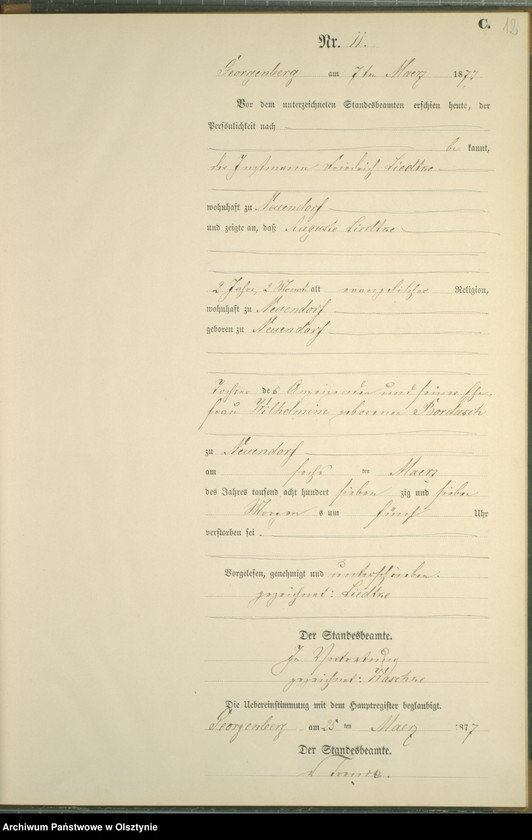 C. 12
Nr. 11.
Georgenberg am 7ten Maerz 1877.
Vor dem unterzeichneten Standesbeamten erschien heute, der
Persönlichkeit nach
be kannt,
Friedrich Liedtke
wohnhaft zu Neuendorf
und zeigte an, daß Auguste Liedtke
2 Jahr, 2 Monat alt evangelischer Religion,
wohnhaft zu Neuendorf
geboren zu Neuendorf
Tochter des Anzeigenden und seiner Ehe-
frau Wilhelmine geborenen
zu Neuendorf
am sechs ten Maerz
des Jahres tausend acht hundert sieben zig und sieben
Morgen s um fünf Uhr
verstorben sei
Vorgelesen, genehmigt und unterschrieben:
gezeichnet: Liedtke
Der Standesbeamte.
In Vertretung
gezeichnet:
Die Uebereinstimmung mit dem Hauptregister beglaubigt.
Georgenberg am 25 ten Maerz 1877
Der Standesbeamte.
Archiwum Państwowe w Olsztynie